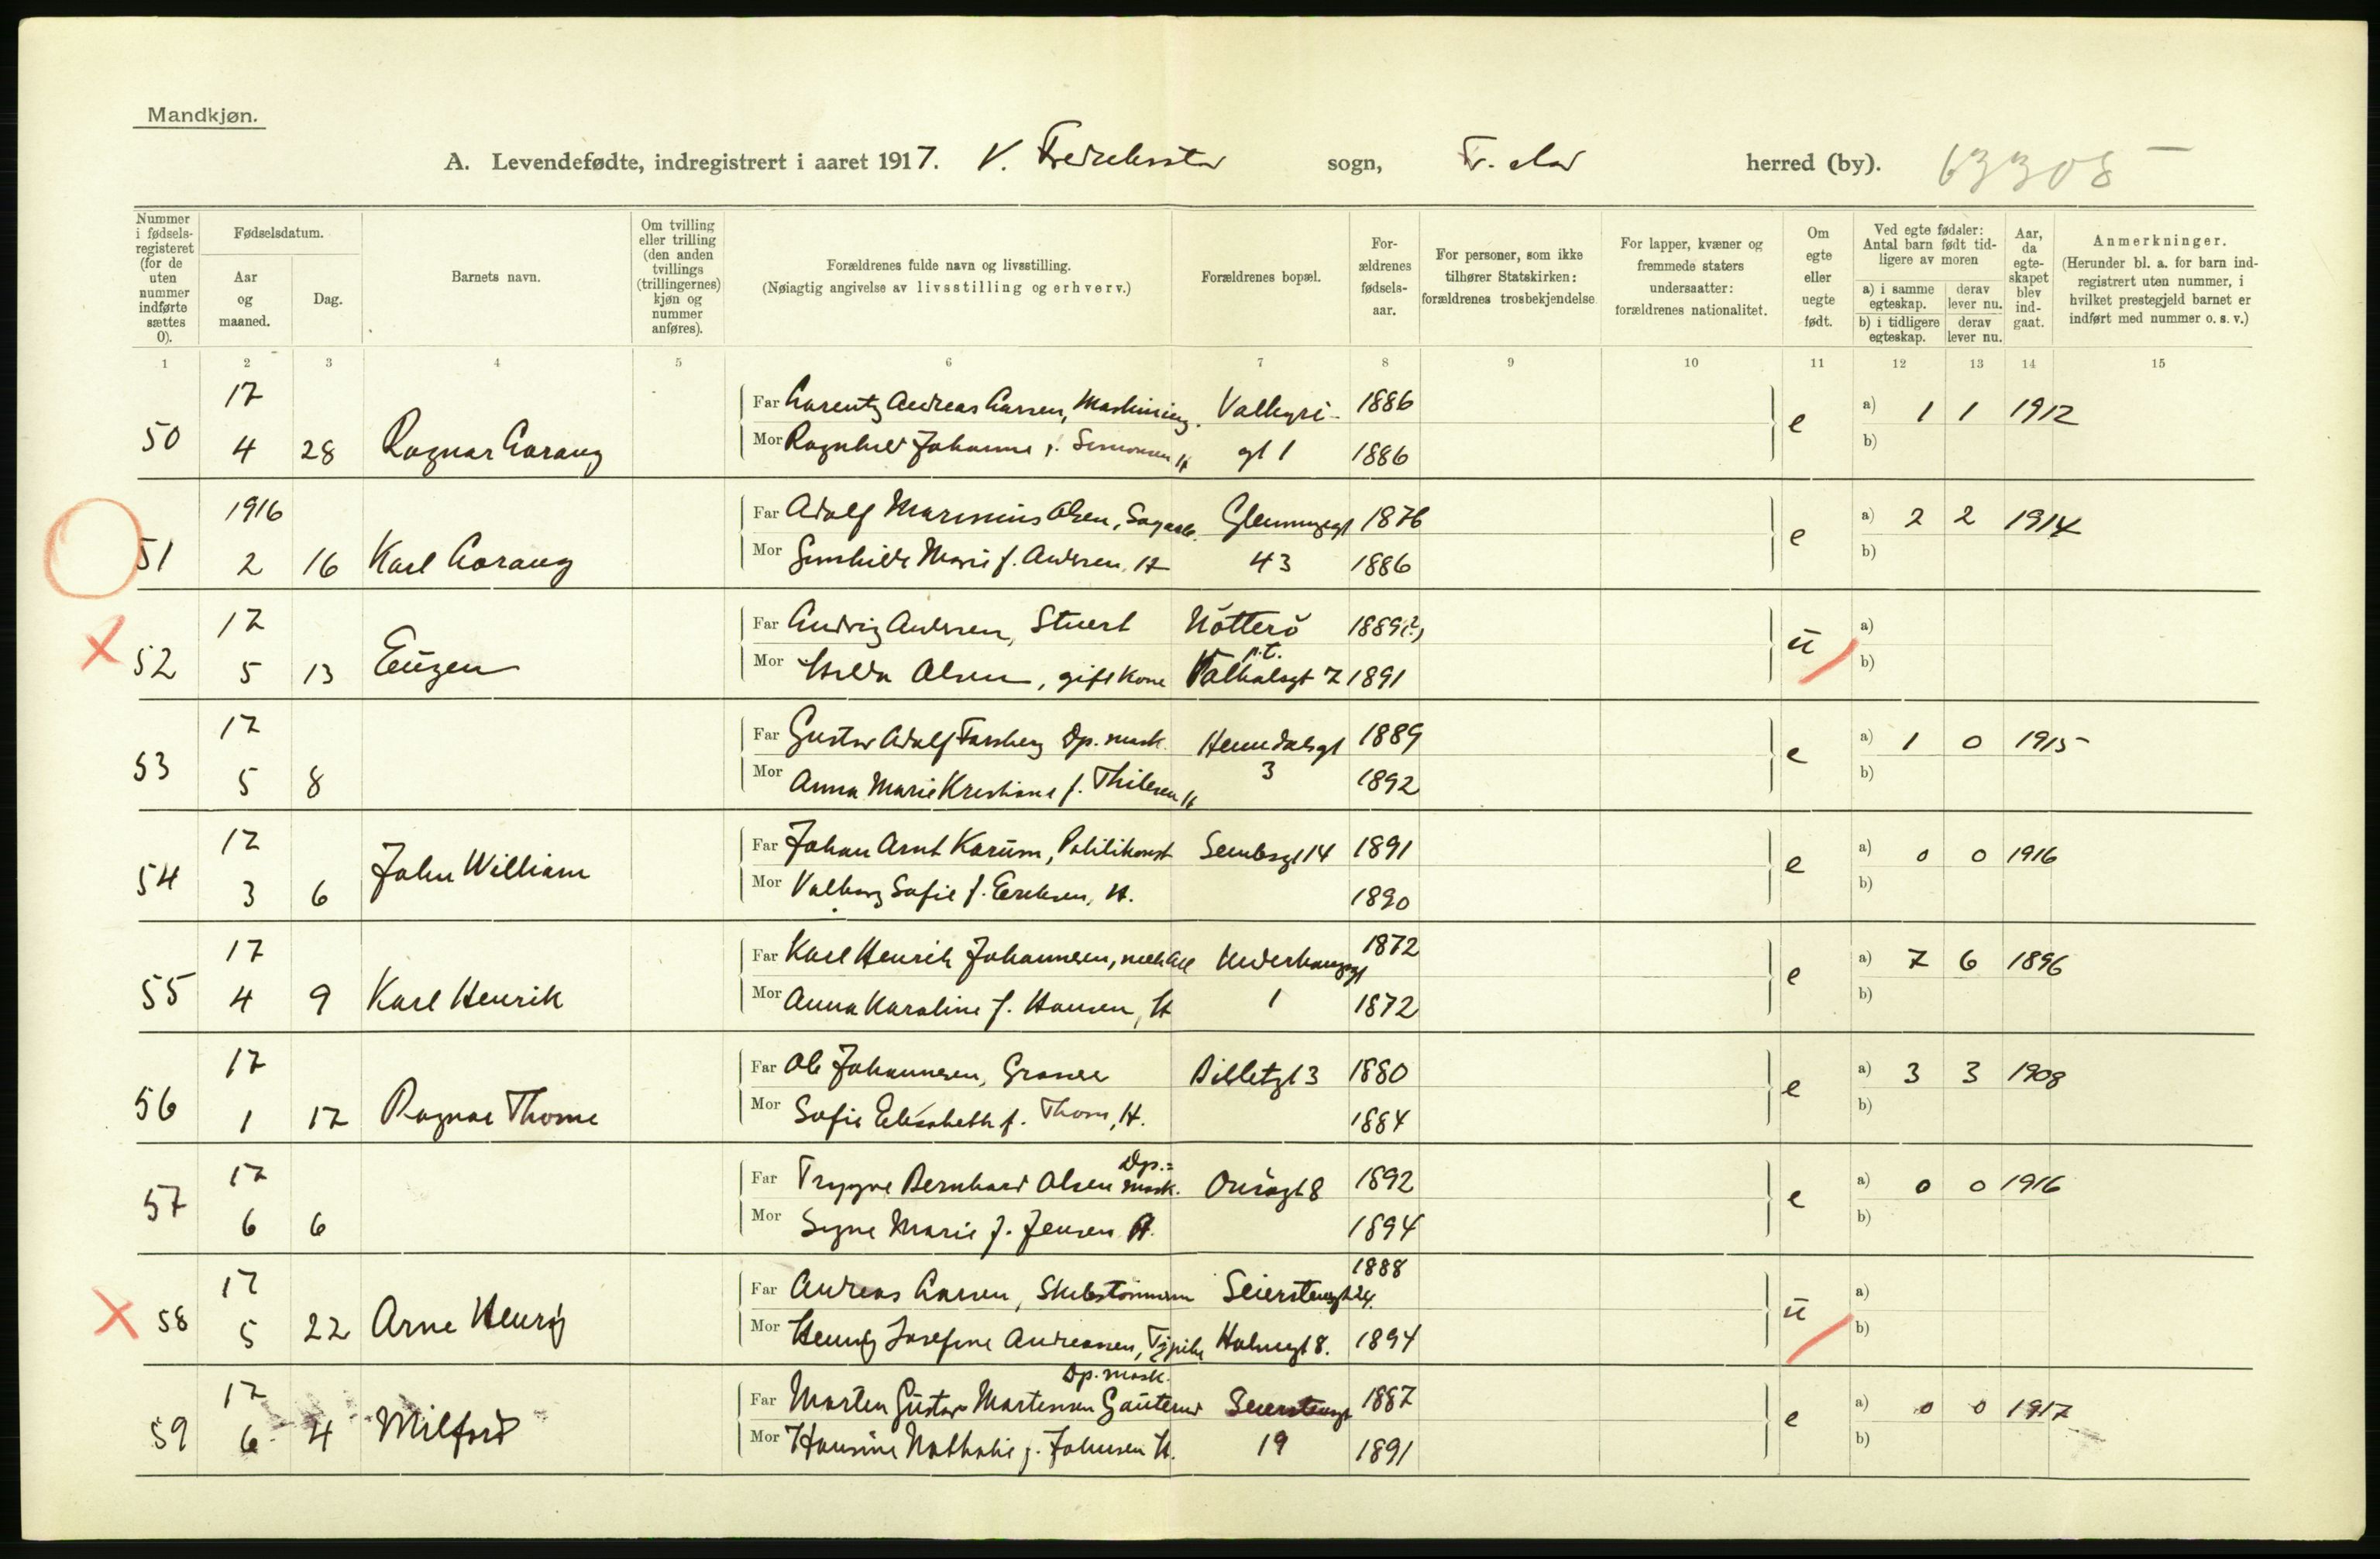 Mandkjøn.
A. Levendefødte, indregistrert i aaret 1917. V. Fredrikstad sogn, Fr.stad herred (by). 63305
Nummer i fødsels-registeret (for de uten nummer indførte sættes 0).
Fødselsdatum.
Aar og maaned.
Dag.
Barnets navn.
Om tvilling eller trilling (den anden tvillings (trillingernes) kjøn og nummer anføres).
Forældrenes fulde navn og livsstilling.
(Nøiagtig angivelse av livsstilling og erhverv.)
Forældrenes bopæl.
For-ældrenes fødsels-aar.
For personer, som ikke tilhører Statskirken: forældrenes trosbekjendelse
For lapper, kvæner og fremmede staters undersaatter: forældrenes nationalitet.
Om egte eller uegte født.
Ved egte fødsler: Antal barn født tid-ligere av moren
a) i samme egteskap. derav lever nu.
b) i tidligere egteskap. derav lever nu.
Aar, da egte-skapet blev ind-gaat.
Anmerkninger.
(Herunder bl. a. for barn ind-registrert uten nummer, i hvilket prestegjeld barnet er indført med nummer o. s. v.)
1 2 3 4 5 6 7 8 9 10 11 12 13 14 15
17 Far Larentz Andreas Larsen, Maskining. Valkyri- 1886 a) 1 1 1912
50 4 28 Ragnar Lorang Mor Ragnhild Johanne f. Simonsen H gt 1 1886 e b)
1916 Far Adolf Marinius Olsen, Sagarb. Glemmegt 1876 a) 2 2 1914
51 2 16 Karl Lorang Mor Gunhilde Marie f. Andersen, H 43 1886 e b)
17 Far Ludvig Andersen, Stuert Nötterö 1889(?) a)
52 5 13 Eugen Mor Hilda Olsen, gift kone p.t. Valhalsgt 7 1891 u b)
17 Far Gustav Adolf Forsberg Dp. mask. Heimdalsgt 1889 a) 1 0 1915
53 5 8 Mor Anna Marie Kristiane f. Thilesen H 3 1892 e b)
17 Far Johan Arnt Karum, Politikonst Sembsgt 14 1891 a) 0 0 1916
54 3 6 John William Mor Valborg Sofie f. Eriksen, H. 1890 e b)
17 Far Karl Henrik Johannesen, mekarb 1872 a) 7 6 1896
55 4 9 Karl Henrik Mor Anna Karoline f. Hansen, H 1 1872 e b)
17 Far Ole Johannesen, Graver 3 1880 a) 3 3 1908
56 1 17 Ragnar Thome Mor Sofie Elisabeth f. Thom, H. 1884 e b)
17 Far Trygve Bernhard Olsen Dp.= mask. Onsögt 8 1892 a) 0 0 1916
57 6 6 Mor Signe Marie f. Jensen H. 1894 e b)
17 Far Andreas Larsen, Skibstömmerm Seierstensgt 24. 1888 a)
58 5 22 Arne Henry Mor Henny Josefine Andreassen, Holmegt 8. 1894 u b)
17 Far Morten Gustav Martinsen Gauterud Dp. mask. Seierstensgt 1887 a) 0 0 1917
59 6 4 Milford Mor Hansine Nathalie f. Johnsen H. 19 1891 e b)